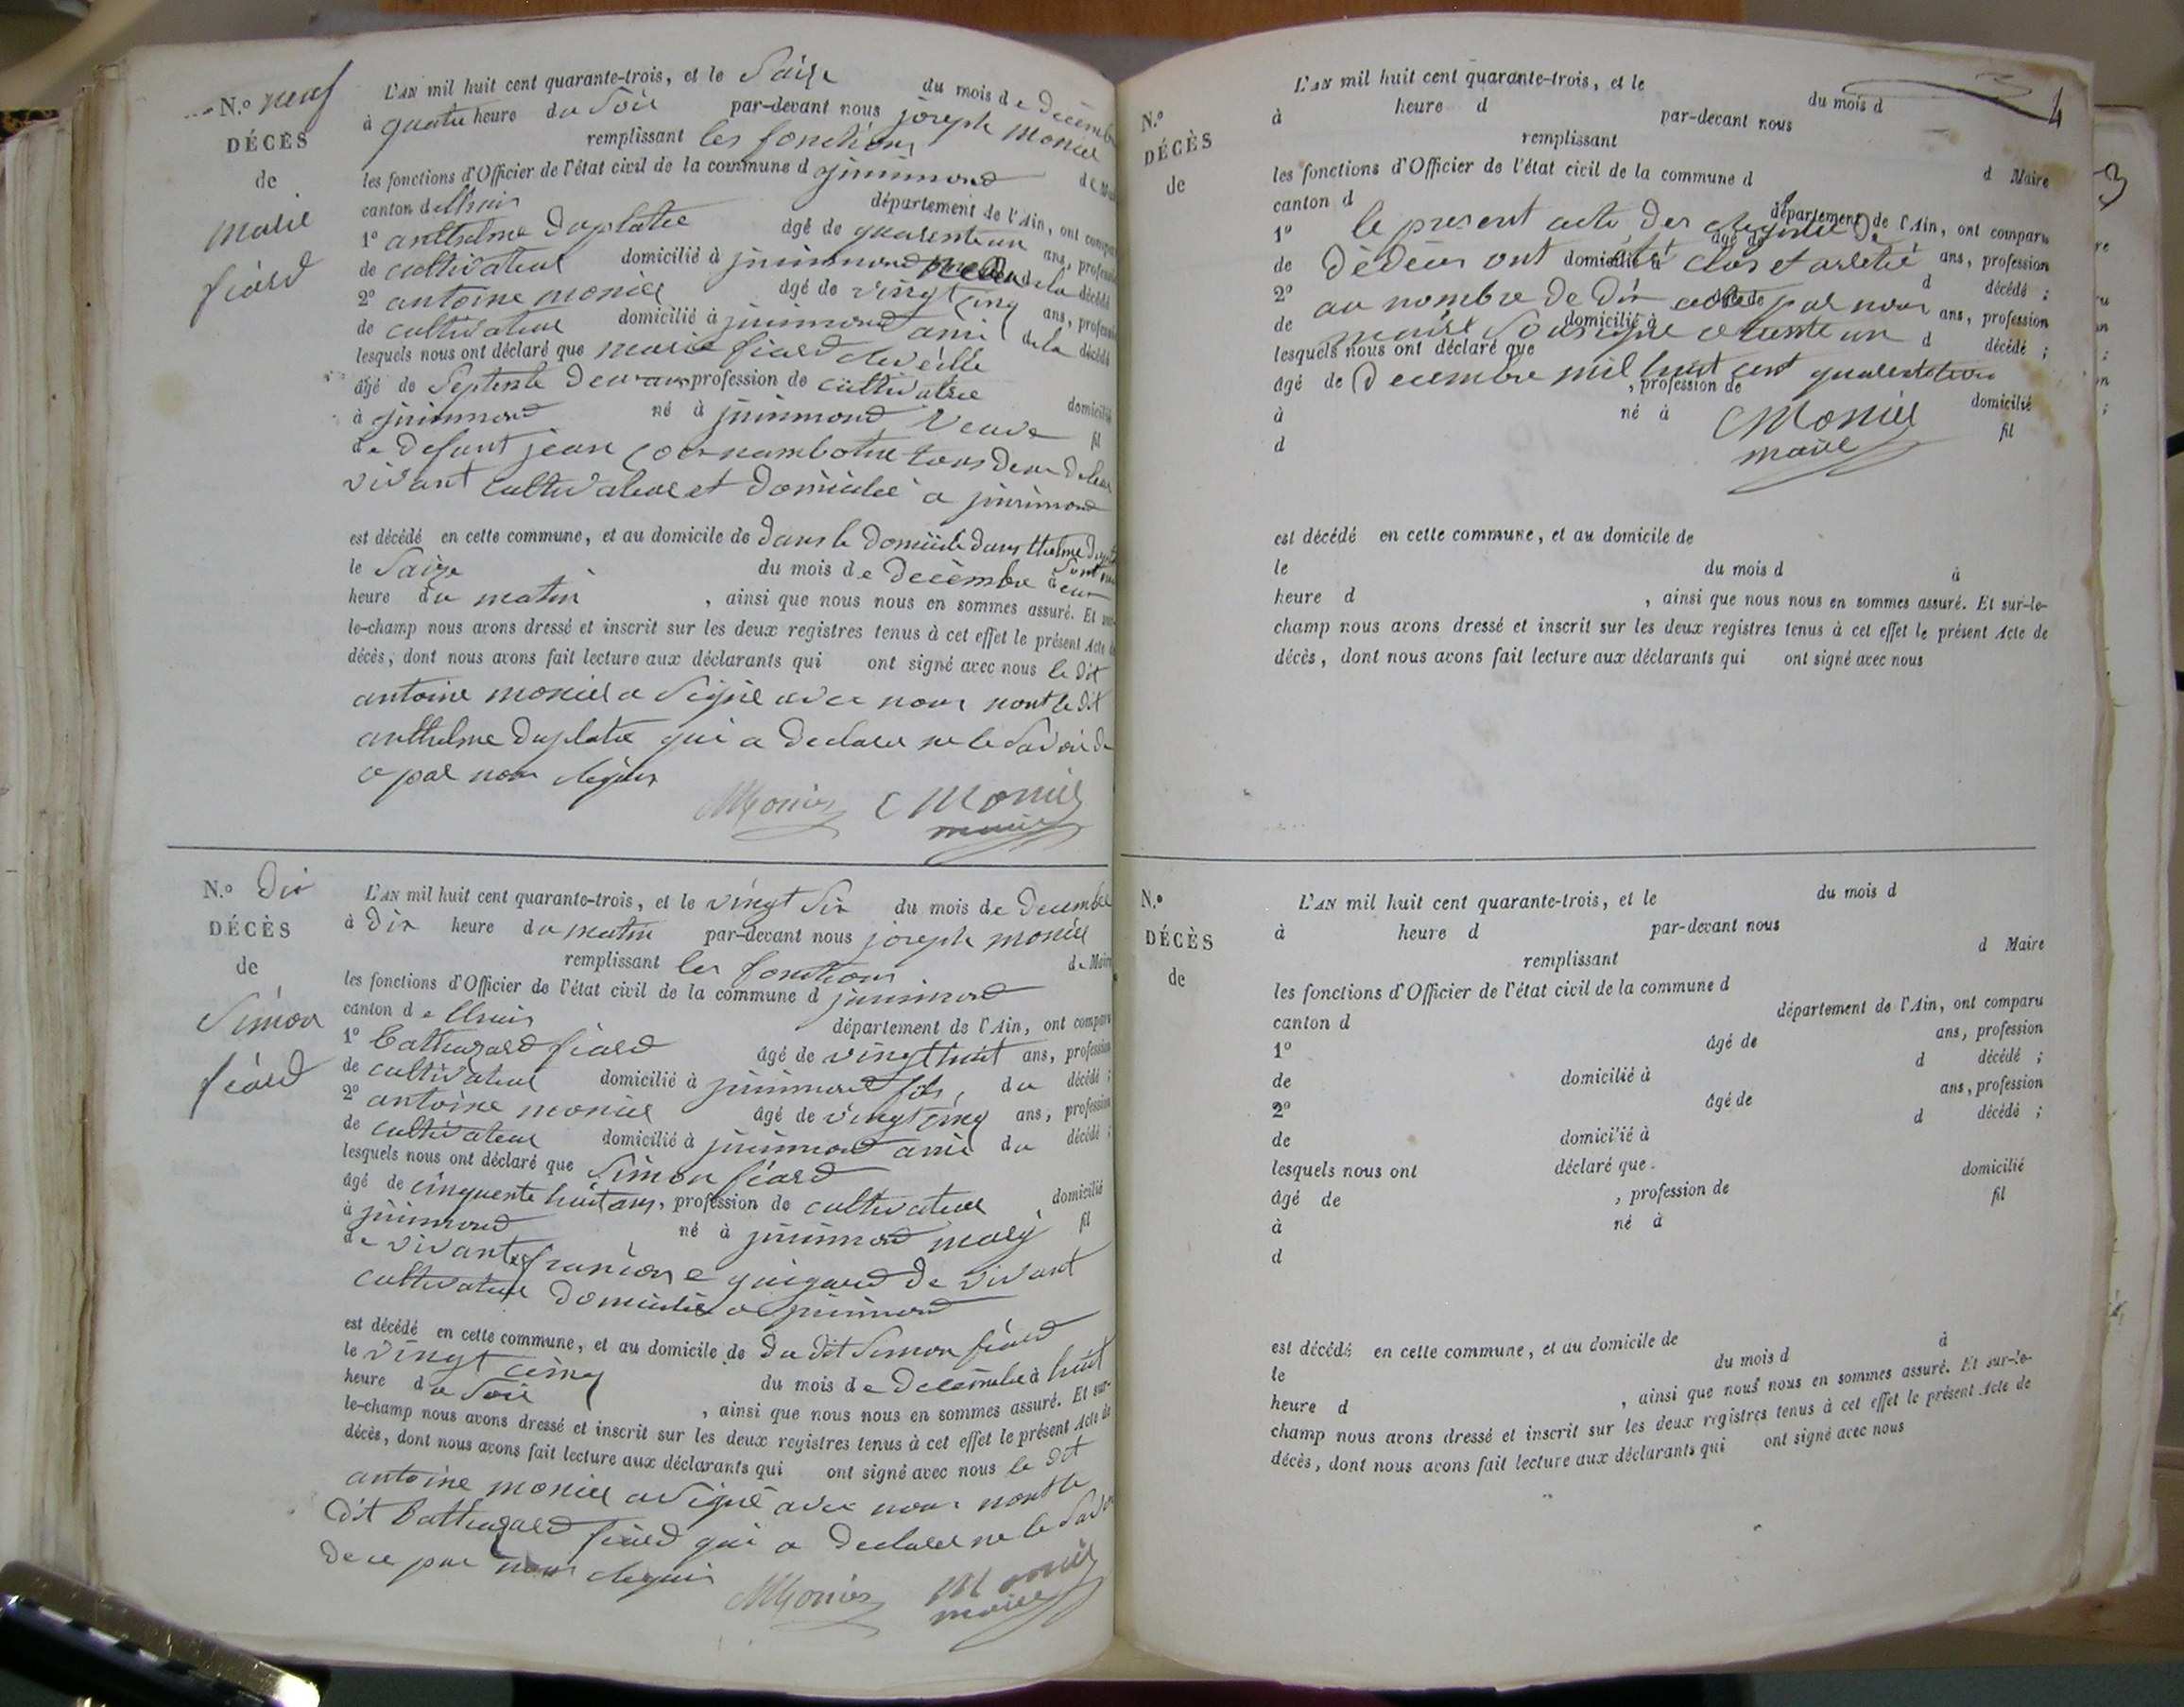 N.° neuf
DÉCÈS
de
marie
fiard
L'AN mil huit cent quarante-trois, et le Saize du mois de Décemb
à quatre heure du Soir par-devant nous joseph monier
remplissant les fonctions de M
les fonctions d'Officier de l'état civil de la commune d jnimond
canton de lhuis département de l'Ain, ont compar
1° anthelme Duplatre âgé de quarente un ans, profession
de cultivateur domicilié à jnimond de la décédé
2° antoine monier âgé de vingt cinq ans, profess
de cultivateur domicilié à jnimond ami de la décédé
lesquels nous ont déclaré que marie fiard
âgé de Septente Deux ans profession de cultivatrice domicilié
à jnimond né à jnimond Veuve fil
de Defunt jean tous Deux De leur
vivant cultivateur et Domicilié a jnimond
est décédé en cette commune, et au domicile de Dans le Domicile Danthelme
le Saize du mois de Décembre à
heure du matin , ainsi que nous nous en sommes assuré. Et sur-
le-champ nous avons dressé et inscrit sur les deux registres tenus à cet effet le présent Acte de
décès, dont nous avons fait lecture aux déclarants qui ont signé avec nous le dit
antoine monier a Signé avec nous nont le dit
anthelme Duplatre qui a Declarer ne le Savoir De
ce par nous Requis
Monier Monier
maire
N.° Dix
DÉCÈS
de
Simon
fiard
L'AN mil huit cent quarante-trois, et le vingt Six du mois de Decembre
à Dix heure du matin par-devant nous joseph monier
remplissant les fonctions de Maire
les fonctions d'Officier de l'état civil de la commune d jnimond
canton de lhuis département de l'Ain, ont comparu
1° Bathazard fiard âgé de vingt huit ans, profession
de cultivateur domicilié à jnimond fils, du décédé ;
2° antoine monier âgé de vingt cinq ans, profession
de cultivateur domicilié à jnimond ami du décédé ;
lesquels nous ont déclaré que Simon fiard
âgé de cinquente huit ans, profession de cultivateur domicilié
à jnimond né à jnimond mary fil
de vivante francoise guigard De vivant
cultivateur Domicilié a jnimond
est décédé en cette commune, et au domicile de Du dit Simon fiard
le vingt cinq du mois de Décembre à huit
heure du Soir , ainsi que nous nous en sommes assuré. Et sur-
le-champ nous avons dressé et inscrit sur les deux registres tenus à cet effet le présent Acte de
décès, dont nous avons fait lecture aux déclarants qui ont signé avec nous le dit
antoine monier a Signé avec nous nont le
dit Bathazard fiard qui a Declarer ne le Savoir
De ce par nous Requis
Monier Monier
maire
4
N.°
DÉCÈS
de
L'AN mil huit cent quarante-trois, et le du mois d
à heure d par-devant nous
remplissant d Maire
les fonctions d'Officier de l'état civil de la commune d
canton d département de l'Ain, ont comparu
le present acte Des Registre De
1° âgé de ans, profession
Dédeces ont été clos et arretté
de domicilié à d décédé ;
au nombre de Dix acte par nous
2° âgé de ans, profession
maire Sousigné trente un
de domicilié à d décédé ;
lesquels nous ont déclaré que
Decembre mil huit cent quarentetrois
âgé de , profession de domicilié
à né à fil
d
Monier
maire
est décédé en cette commune, et au domicile de
le du mois d à
heure d , ainsi que nous nous en sommes assuré. Et sur-le-
champ nous avons dressé et inscrit sur les deux registres tenus à cet effet le présent Acte de
décès, dont nous avons fait lecture aux déclarants qui ont signé avec nous
N.°
DÉCÈS
de
L'AN mil huit cent quarante-trois, et le du mois d
à heure d par-devant nous
remplissant d Maire
les fonctions d'Officier de l'état civil de la commune d
canton d département de l'Ain, ont comparu
1° âgé de ans, profession
de domicilié à d décédé ;
2° âgé de ans, profession
de domicilié à d décédé ;
lesquels nous ont déclaré que
âgé de , profession de domicilié
à né à fil
d
est décédé en cette commune, et au domicile de
le du mois d à
heure d , ainsi que nous nous en sommes assuré. Et sur-le-
champ nous avons dressé et inscrit sur les deux registres tenus à cet effet le présent Acte de
décès, dont nous avons fait lecture aux déclarants qui ont signé avec nous
3